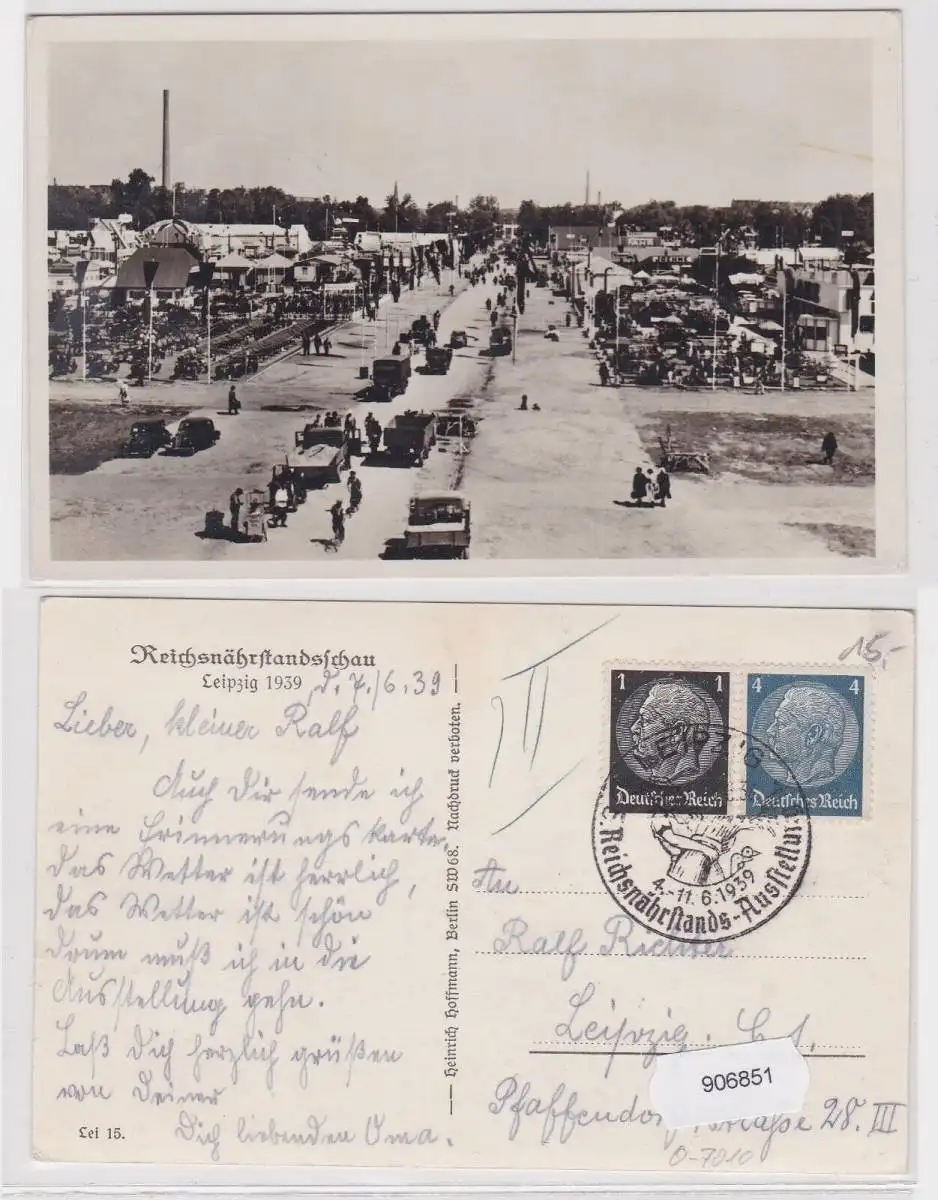 Reichsnährstandsschau
Leipzig 1939
d. 7./6.39
Lieber, kleiner Ralf
Auch Dir sende ich
eine Erinnerungskarte,
das Wetter ist herrlich,
das Wetter ist schön
drum muß ich in die
Ausstellung gehn.
Laß Dich herzlich grüßen
von Deiner
Dich liebenden Oma.
Lei 15.
Heinrich Hoffmann, Berlin SW 68. Nachdruck verboten.
15,-
1 1
Deutsches Reich
4 4
Deutsches Reich
LEIPZIG
4.-11.6.1939
5. Reichsnährstands-Ausstellung
An
Ralf Richter
Leipzig. C 1.
Pfaffendorferstraße 28. III
906851
O-7010